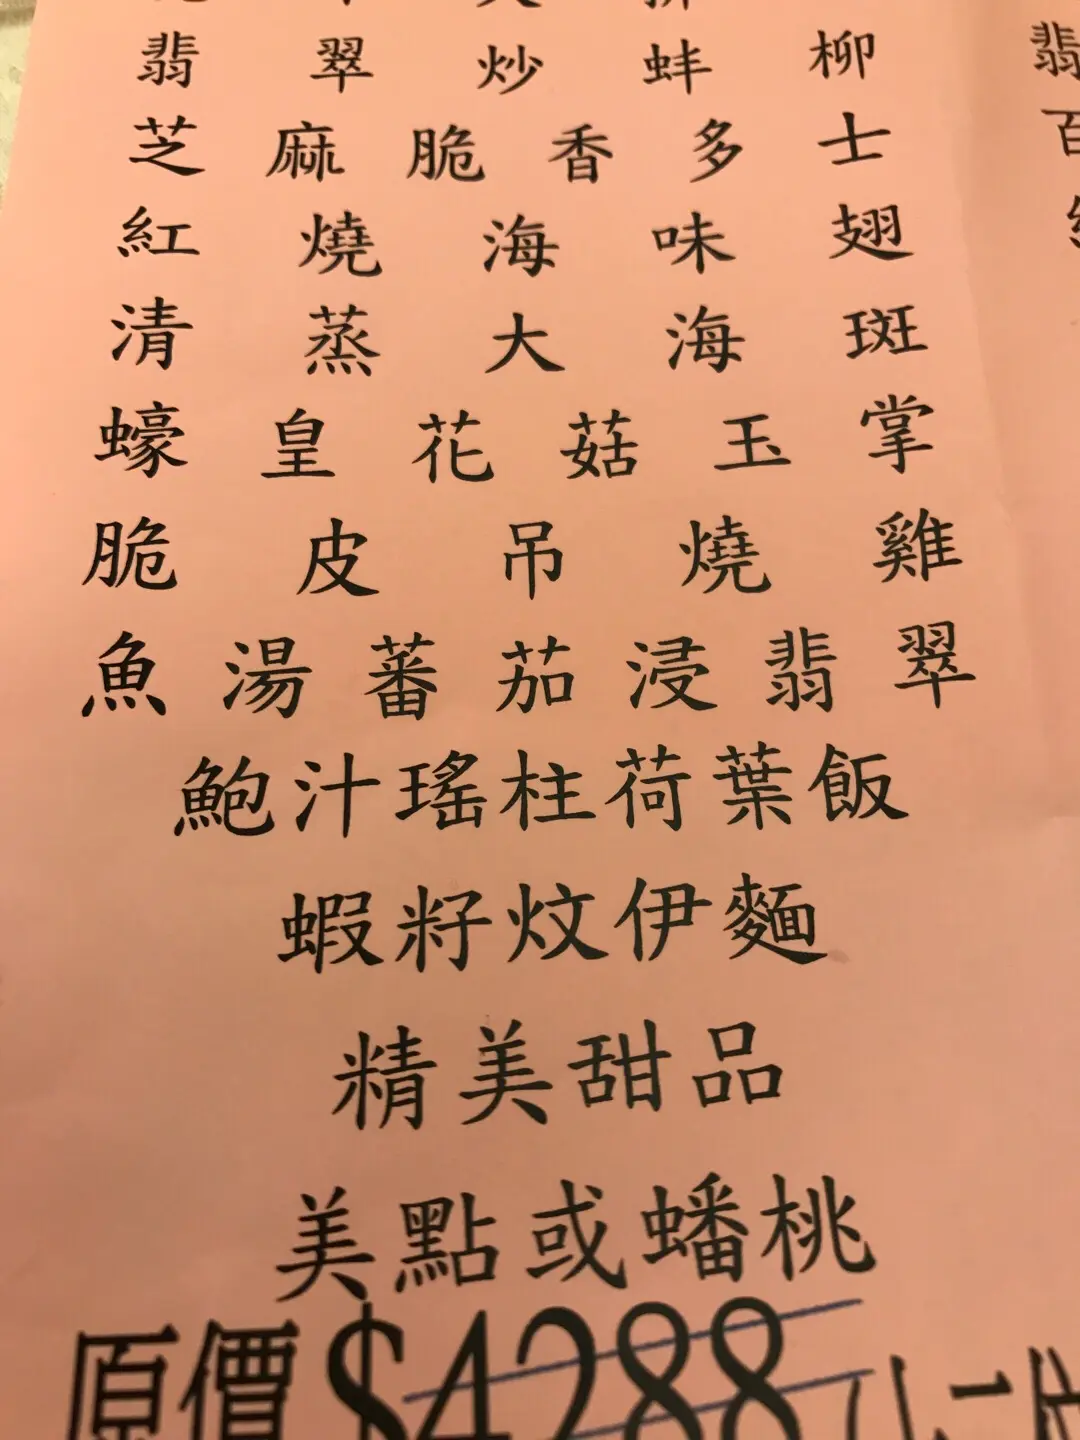 翡翠炒蚌柳
芝麻脆香多士
紅燒海味翅
清蒸大海斑
蠔皇花菇玉掌
脆皮吊燒雞
魚湯蕃茄浸翡翠
鮑汁瑤柱荷葉飯
蝦籽炆伊麵
精美甜品
美點或蟠桃
原價$4288
翡
百